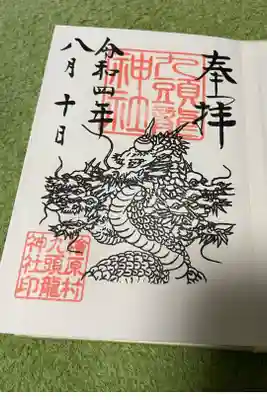 奉拝
九頭龍
神社
令和四年
八月十日
檜原村
九頭龍
神社印